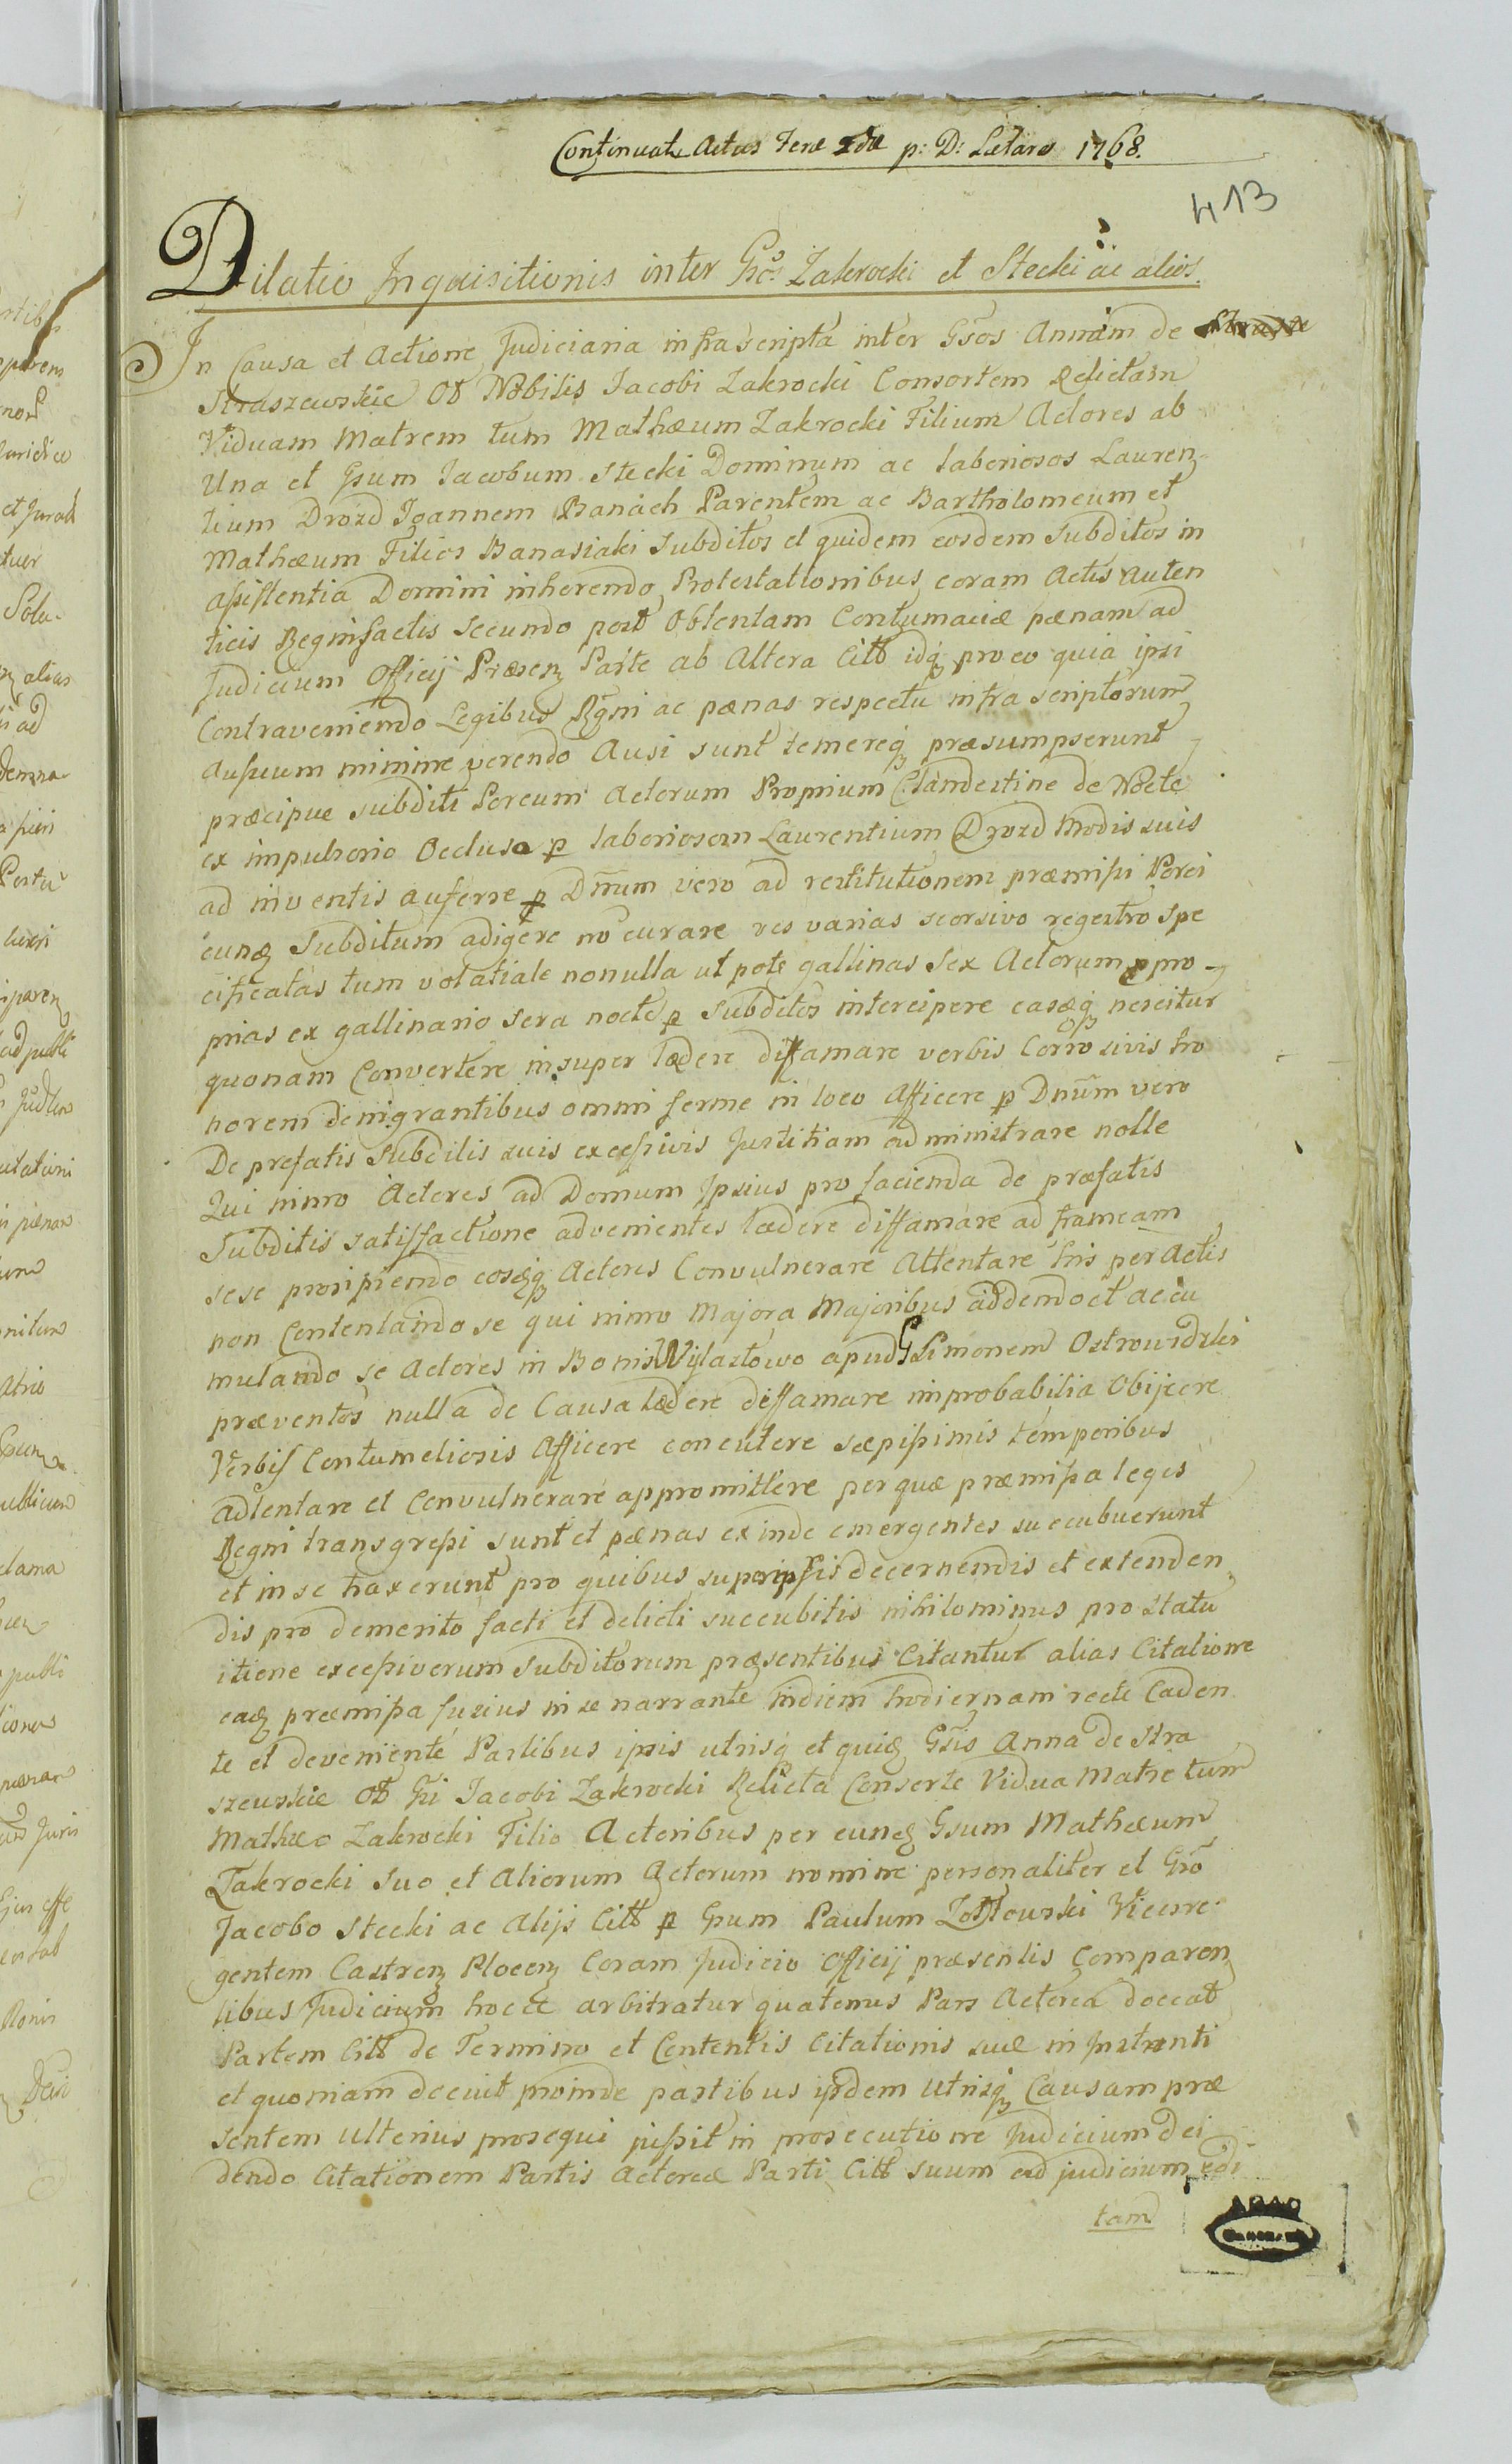 Continuat. Actus Feriæ 2dæ p: D: Lætare 1768.
413
Dilatio Inquisitionis inter Gsos Zakrocki et Stecki ac alios.
In Causa et Actione Judiciaria infrascripta inter Gsos Annam de
Straszewskie Ol Nobilis Jacobi Zakrocki Consortem Relictam
Viduam Matrem tum Mathæum Zakrocki Filium Actores ab
Una et Gsum Jacobum Stecki Dominum ac laboriosos Lauren
tium Drozd Joannem Banach Parentem ac Bartholomeum et
Mathæum Filios Banasiaki Subditos et quidem eosdem Subditos in
Assistentia Domini inherendo Protestationibus coram Actis Auten
ticis Regni factis Secundo post Obtentam Contumaciæ pænam ad
Judicium Officij Præsenz Parte ab Altera Citt idq pro eo quia ipsi
Contraveniendo Legibus Rgni ac pænas respectu infra scriptorum
Ausuum minime verendo Ausi sunt temereq præsumpserunt
præcipue subditi Porcum Actorum Proprium Clandestine de Nocte
ex impulsorio Occluso p laboriosom Laurentium Drozd Modis suis
ad inventis auferre p Dnum vero ad restitutionem præmissi Porci
eunq Subditum adigere no curare res varias seorsivo regestro spe
cificatas tum volatiale nonulla ut pote gallinas Sex Actorum ppro
prias ex gallinario sera nocte p Subditos intercipere easq nescitur
quonam Convertere insuper lædere diffamare verbis Corrosivis ho
norem denigrantibus omni ferme in loco Afficere p Dnum vero
De prefatis Subditis suis excessivis Justitiam administrare nolle
Qui nimo Actores ad Domum Ipsius pro facienda de præfatis
Subditis satisfactione advenientes lædere diffamare ad frameam
sese proripiendo eosq Actores Convulnerare Attentare his peractis
non Contentando se qui nimo Majora Majoribus addendo et accu
mulando se Actores in Bonis Wylazłowo apud G Simonem Ostrowidzki
præventos nulla de Causa lædere diffamare improbabilia Obijcere
Verbis Contumeliosis Afficere concutere sæpissimis temporibus
adtentare et Convulnerare appromittere per quæ præmissa leges
Regni transgressi sunt et pænas exinde emergentes succubuerunt
et in se traxerunt pro quibus super ipsis decernendis et extenden
dis pro demerito facti et delicti succubitis nihilominus pro statu
itione excessivorum Subditorum præsentibus Citantur alias Citatione
eaq præmissa fusius in se narrante indiem hodiernam recte Caden
te et deveniente Partibus ipsis utrisq et quiq Gsis Anna de Stra
szewskie Ol Gsi Jacobi Zakrocki Relicta Consorte Vidua Matre tum
Mathæo Zakrocki Filio Actoribus per eunq Gsum Mathæum
Zakrocki Suo et Aliorum Actorum nomine personaliter et Gso
Jacobo Stecki ac Alijs Citt p Gsum Paulum Vicesre
gentem Castrenz Plocenz Coram Judicio Officij præsentis Comparen
tibus Judicium hocce arbitratur quatenus Pars Actorea doceat
Partem Citt de Termino et Contentis Citationis suæ in Instanti
et quoniam docuit proinde partibus ijsdem utrisq Causam præ
sentem Ulterius prosequi jussit in prosecutione Judicium dei
dendo Citationem Partis Actoreæ Parti Citt suum ad judicium edi
tam
AGAD